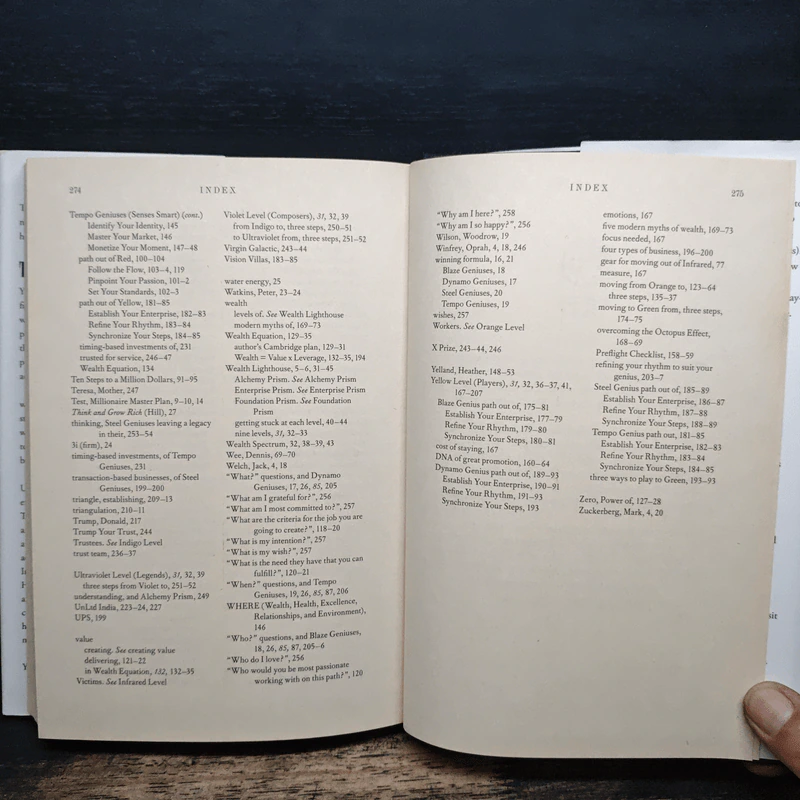 274
INDEX
Tempo Geniuses (Senses Smart) (cont.)
Identify Your Identity, 145
Master Your Market, 146
Monetize Your Moment, 147–48
path out of Red, 100–104
Follow the Flow, 103–4, 119
Pinpoint Your Passion, 101–2
Set Your Standards, 102–3
path out of Yellow, 181–85
Establish Your Enterprise, 182–83
Refine Your Rhythm, 183–84
Synchronize Your Steps, 184–85
timing-based investments of, 231
trusted for service, 246–47
Wealth Equation, 134
Ten Steps to a Million Dollars, 91–95
Teresa, Mother, 247
Test, Millionaire Master Plan, 9–10, 14
Think and Grow Rich (Hill), 27
thinking, Steel Geniuses leaving a legacy
in their, 253–54
3i (firm), 24
timing-based investments, of Tempo
Geniuses, 231
transaction-based businesses, of Steel
Geniuses, 199–200
triangle, establishing, 209–13
triangulation, 210–11
Trump, Donald, 217
Trump Your Trust, 244
Trustees. See Indigo Level
trust team, 236–37
Ultraviolet Level (Legends), 31, 32, 39
three steps from Violet to, 251–52
understanding, and Alchemy Prism, 249
UnLtd India, 223–24, 227
UPS, 199
value
creating. See creating value
delivering, 121–22
in Wealth Equation, 132, 132–35
Victims. See Infrared Level
Violet Level (Composers), 31, 32, 39
from Indigo to, three steps, 250–51
to Ultraviolet from, three steps, 251–52
Virgin Galactic, 243–44
Vision Villas, 183–85
water energy, 25
Watkins, Peter, 23–24
wealth
levels of. See Wealth Lighthouse
modern myths of, 169–73
Wealth Equation, 129–35
author's Cambridge plan, 129–31
Wealth = Value x Leverage, 132–35, 194
Wealth Lighthouse, 5–6, 31–45
Alchemy Prism. See Alchemy Prism
Enterprise Prism. See Enterprise Prism
Foundation Prism. See Foundation
Prism
getting stuck at each level, 40–44
nine levels, 31, 32–33
Wealth Spectrum, 32, 38–39, 43
Wee, Dennis, 69–70
Welch, Jack, 4, 18
"What?" questions, and Dynamo
Geniuses, 17, 26, 85, 205
"What am I grateful for?", 256
"What am I most committed to?", 257
"What are the criteria for the job you are
going to create?", 118–20
"What is my intention?", 257
"What is my wish?", 257
"What is the need they have that you can
fulfill?", 120–21
"When?" questions, and Tempo
Geniuses, 19, 26, 85, 87, 206
WHERE (Wealth, Health, Excellence,
Relationships, and Environment),
146
"Who?" questions, and Blaze Geniuses,
18, 26, 85, 87, 205–6
"Who do I love?", 256
"Who would you be most passionate
working with on this path?", 120
INDEX
275
"Why am I here?", 258
"Why am I so happy?", 256
Wilson, Woodrow, 19
Winfrey, Oprah, 4, 18, 246
winning formula, 16, 21
Blaze Geniuses, 18
Dynamo Geniuses, 17
Steel Geniuses, 20
Tempo Geniuses, 19
wishes, 257
Workers. See Orange Level
X Prize, 243–44, 246
Yelland, Heather, 148–53
Yellow Level (Players), 31, 32, 36–37, 41,
167–207
Blaze Genius path out of, 175–81
Establish Your Enterprise, 177–79
Refine Your Rhythm, 179–80
Synchronize Your Steps, 180–81
cost of staying, 167
DNA of great promotion, 160–64
Dynamo Genius path out of, 189–93
Establish Your Enterprise, 190–91
Refine Your Rhythm, 191–93
Synchronize Your Steps, 193
emotions, 167
five modern myths of wealth, 169–73
focus needed, 167
four types of business, 196–200
gear for moving out of Infrared, 77
measure, 167
moving from Orange to, 123–64
three steps, 135–37
moving to Green from, three steps,
174–75
overcoming the Octopus Effect,
168–69
Preflight Checklist, 158–59
refining your rhythm to suit your
genius, 203–7
Steel Genius path out of, 185–89
Establish Your Enterprise, 186–87
Refine Your Rhythm, 187–88
Synchronize Your Steps, 188–89
Tempo Genius path out, 181–85
Establish Your Enterprise, 182–83
Refine Your Rhythm, 183–84
Synchronize Your Steps, 184–85
three ways to play to Green, 193–93
Zero, Power of, 127–28
Zuckerberg, Mark, 4, 20